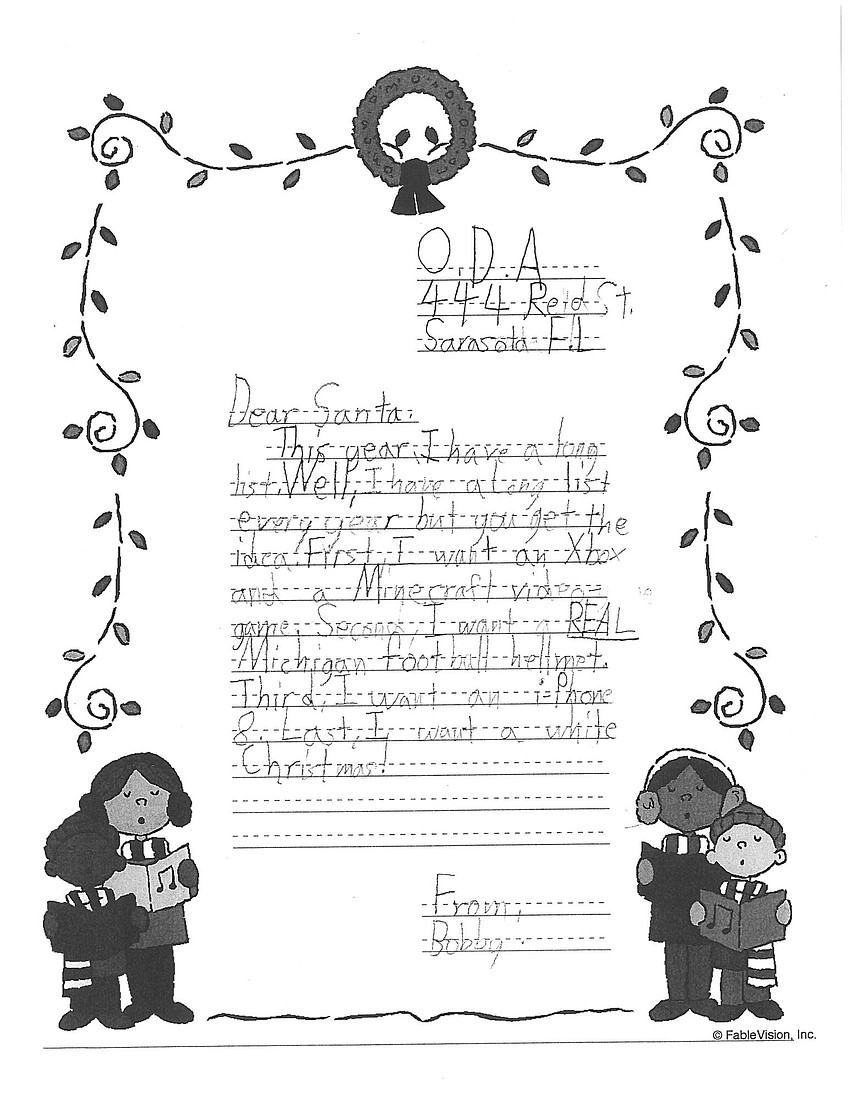 O.D.A
444 Reid St.
Sarasota F.L
Dear Santa,
This year, I have a long
list. Well, I have a long list
every year but you get the
idea. First, I want an Xbox
and a Minecraft video-
game. Second, I want a REAL
Michigan football hellmet.
Third, I want an i-Phone
8. Last, I want a white
Christmas!
From,
Bobby
© FableVision, Inc.